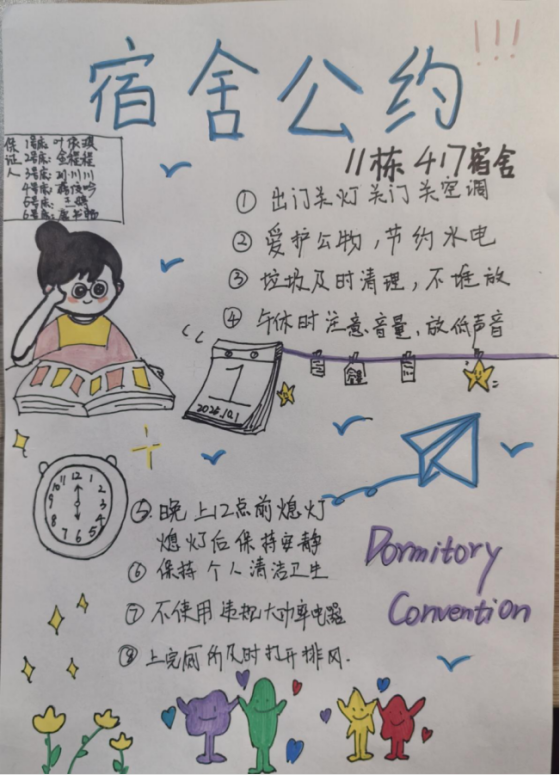 宿舍公约
!!!
11栋 417宿舍
保证人
1号床:
2号床:
3号床: 刘川川
4号床:
5号床:
6号床:
① 出门关灯 关门 关空调
② 爱护公物,节约水电
③ 垃圾及时清理,不堆放
④ 午休时注意音量,放低声音
1
2025.10.1
12
1
2
3
4
5
6
7
8
9
10
11
⑤ 晚上12点前熄灯
熄灯后保持安静
⑥ 保持个人清洁卫生
⑦ 不使用违规大功率电器
⑧ 上完厕所及时打开排风.
Dormitory
Convention